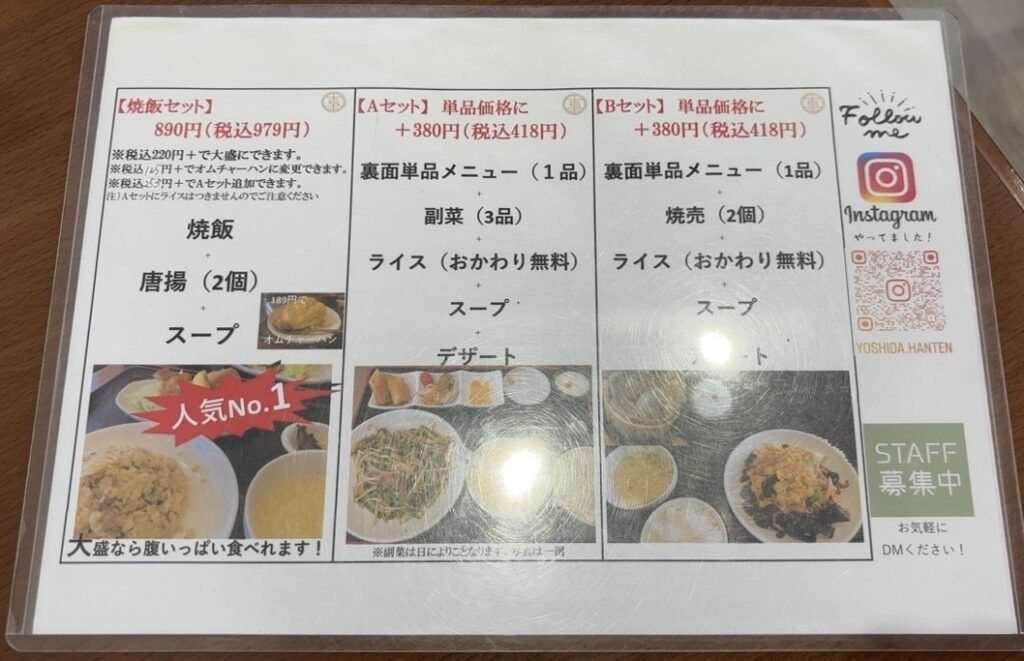 【焼飯セット】
890円(税込979円)
※税込220円+で大盛にできます。
※税込165円+でオムチャーハンに変更できます。
※税込253円+でAセット追加できます。
注)Aセットにライスはつきませんのでご注意ください
焼飯
+
唐揚（2個）
+
スープ
+189円で
オムチャーハン
人気No.1
大盛なら腹いっぱい食べれます！
【Aセット】 単品価格に
+380円(税込418円)
裏面単品メニュー（１品）
+
副菜（3品）
+
ライス（おかわり無料）
+
スープ
+
デザート
※副菜は日によりことなります。写真は一例
【Bセット】 単品価格に
+380円(税込418円)
裏面単品メニュー（1品）
+
焼売（2個）
+
ライス（おかわり無料）
+
スープ
ート
Follow
me
Instagram
やってました！
YOSHIDA.HANTEN
STAFF
募集中
お気軽に
DMください！